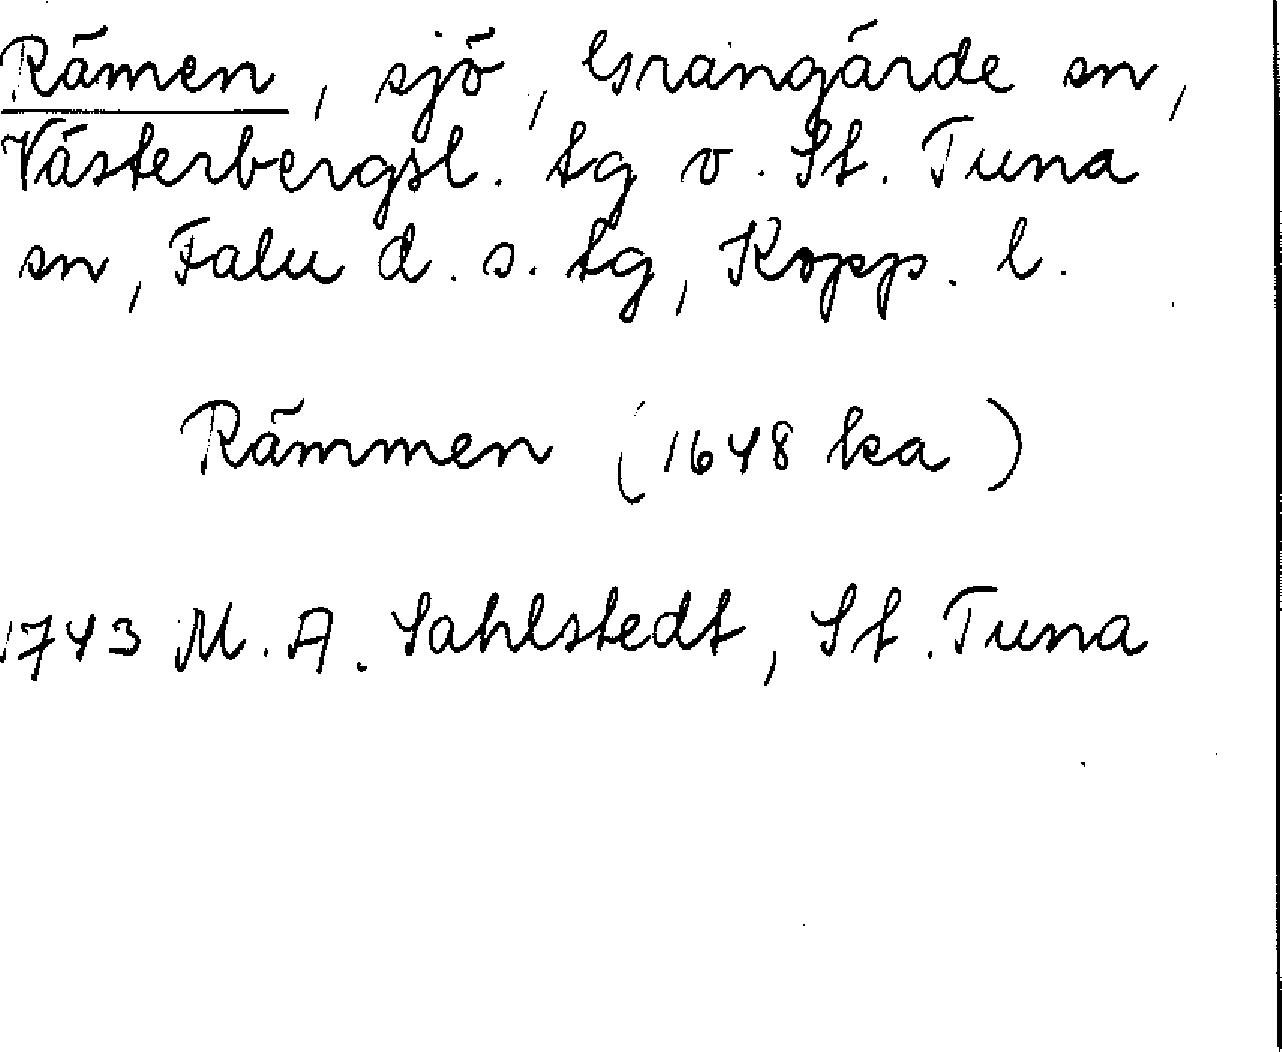 Rämen, sjö, Grangärde sn,
Västerbergsl. tg o. St. Tuna
sn, Falu d. s. tg, Kopp. l.
Rämmen (1648 ka)
1743 M. A. Sahlstedt, St. Tuna